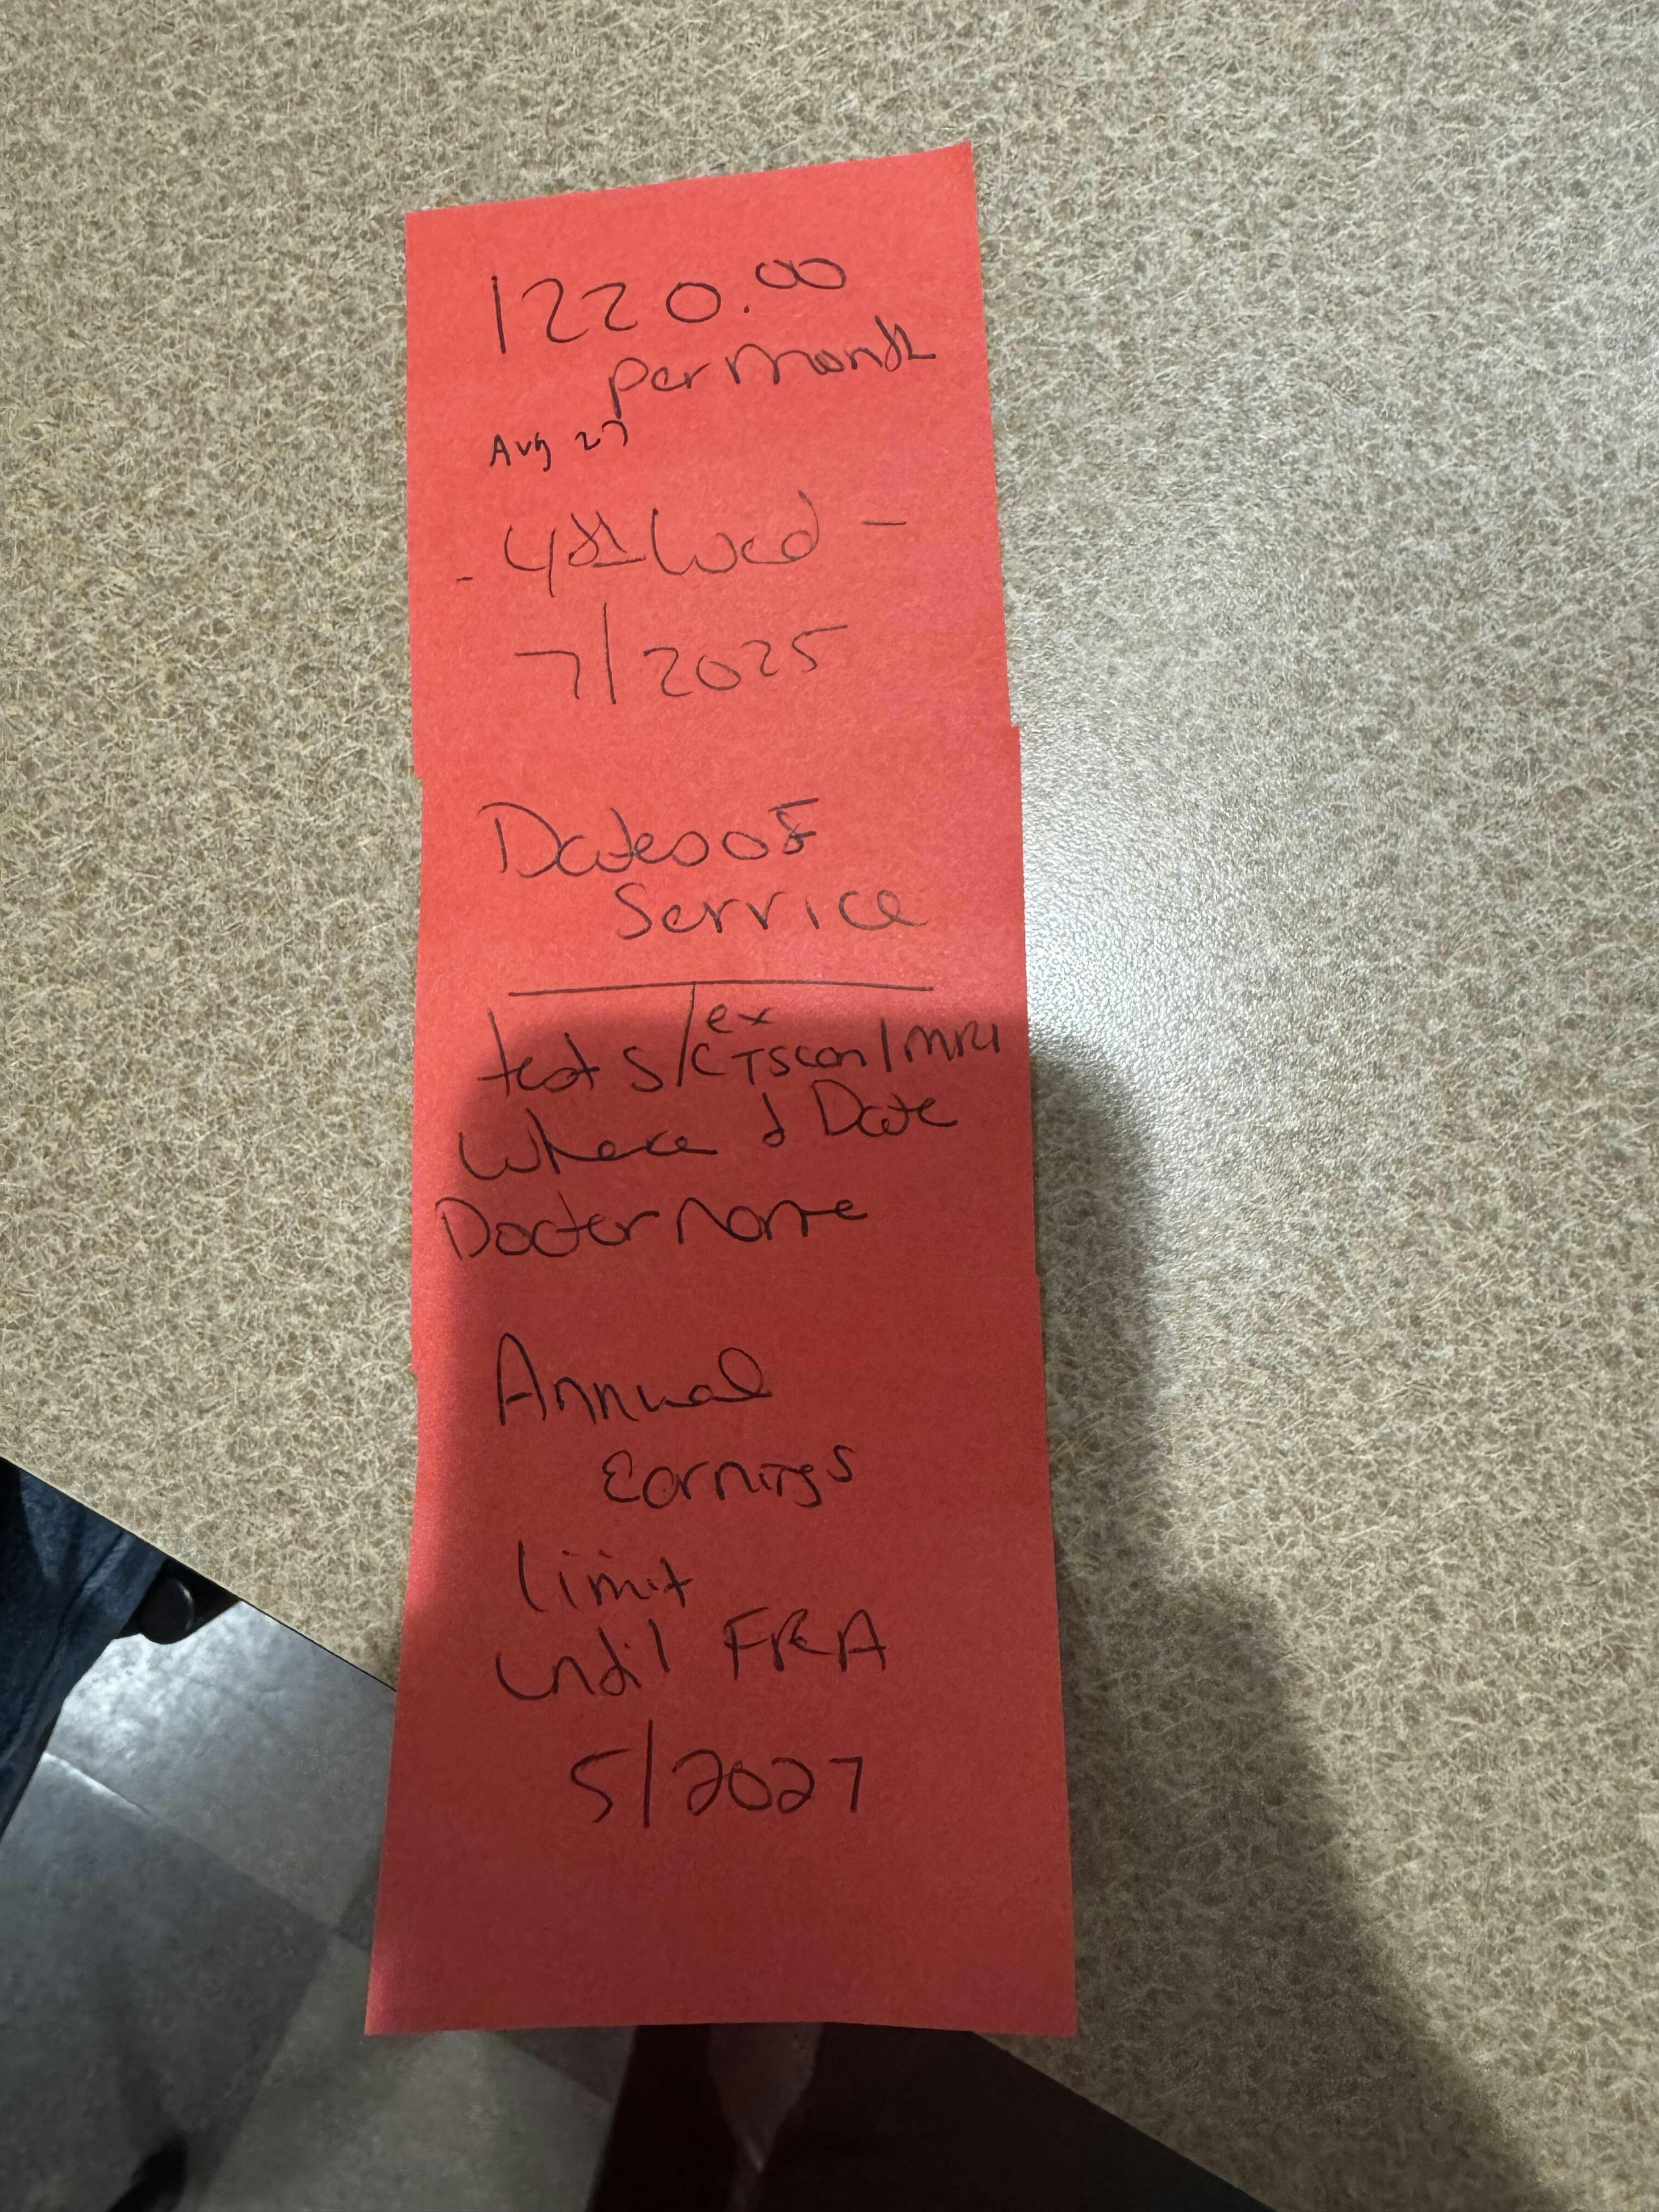 1220.00
per month
Aug 27
- 4th Wed -
7/2025
Dates of
Service
ex
tests/CTscan/MRI
Where & Date
Doctor name
Annual
Earnings
limit
until FRA
5/2027